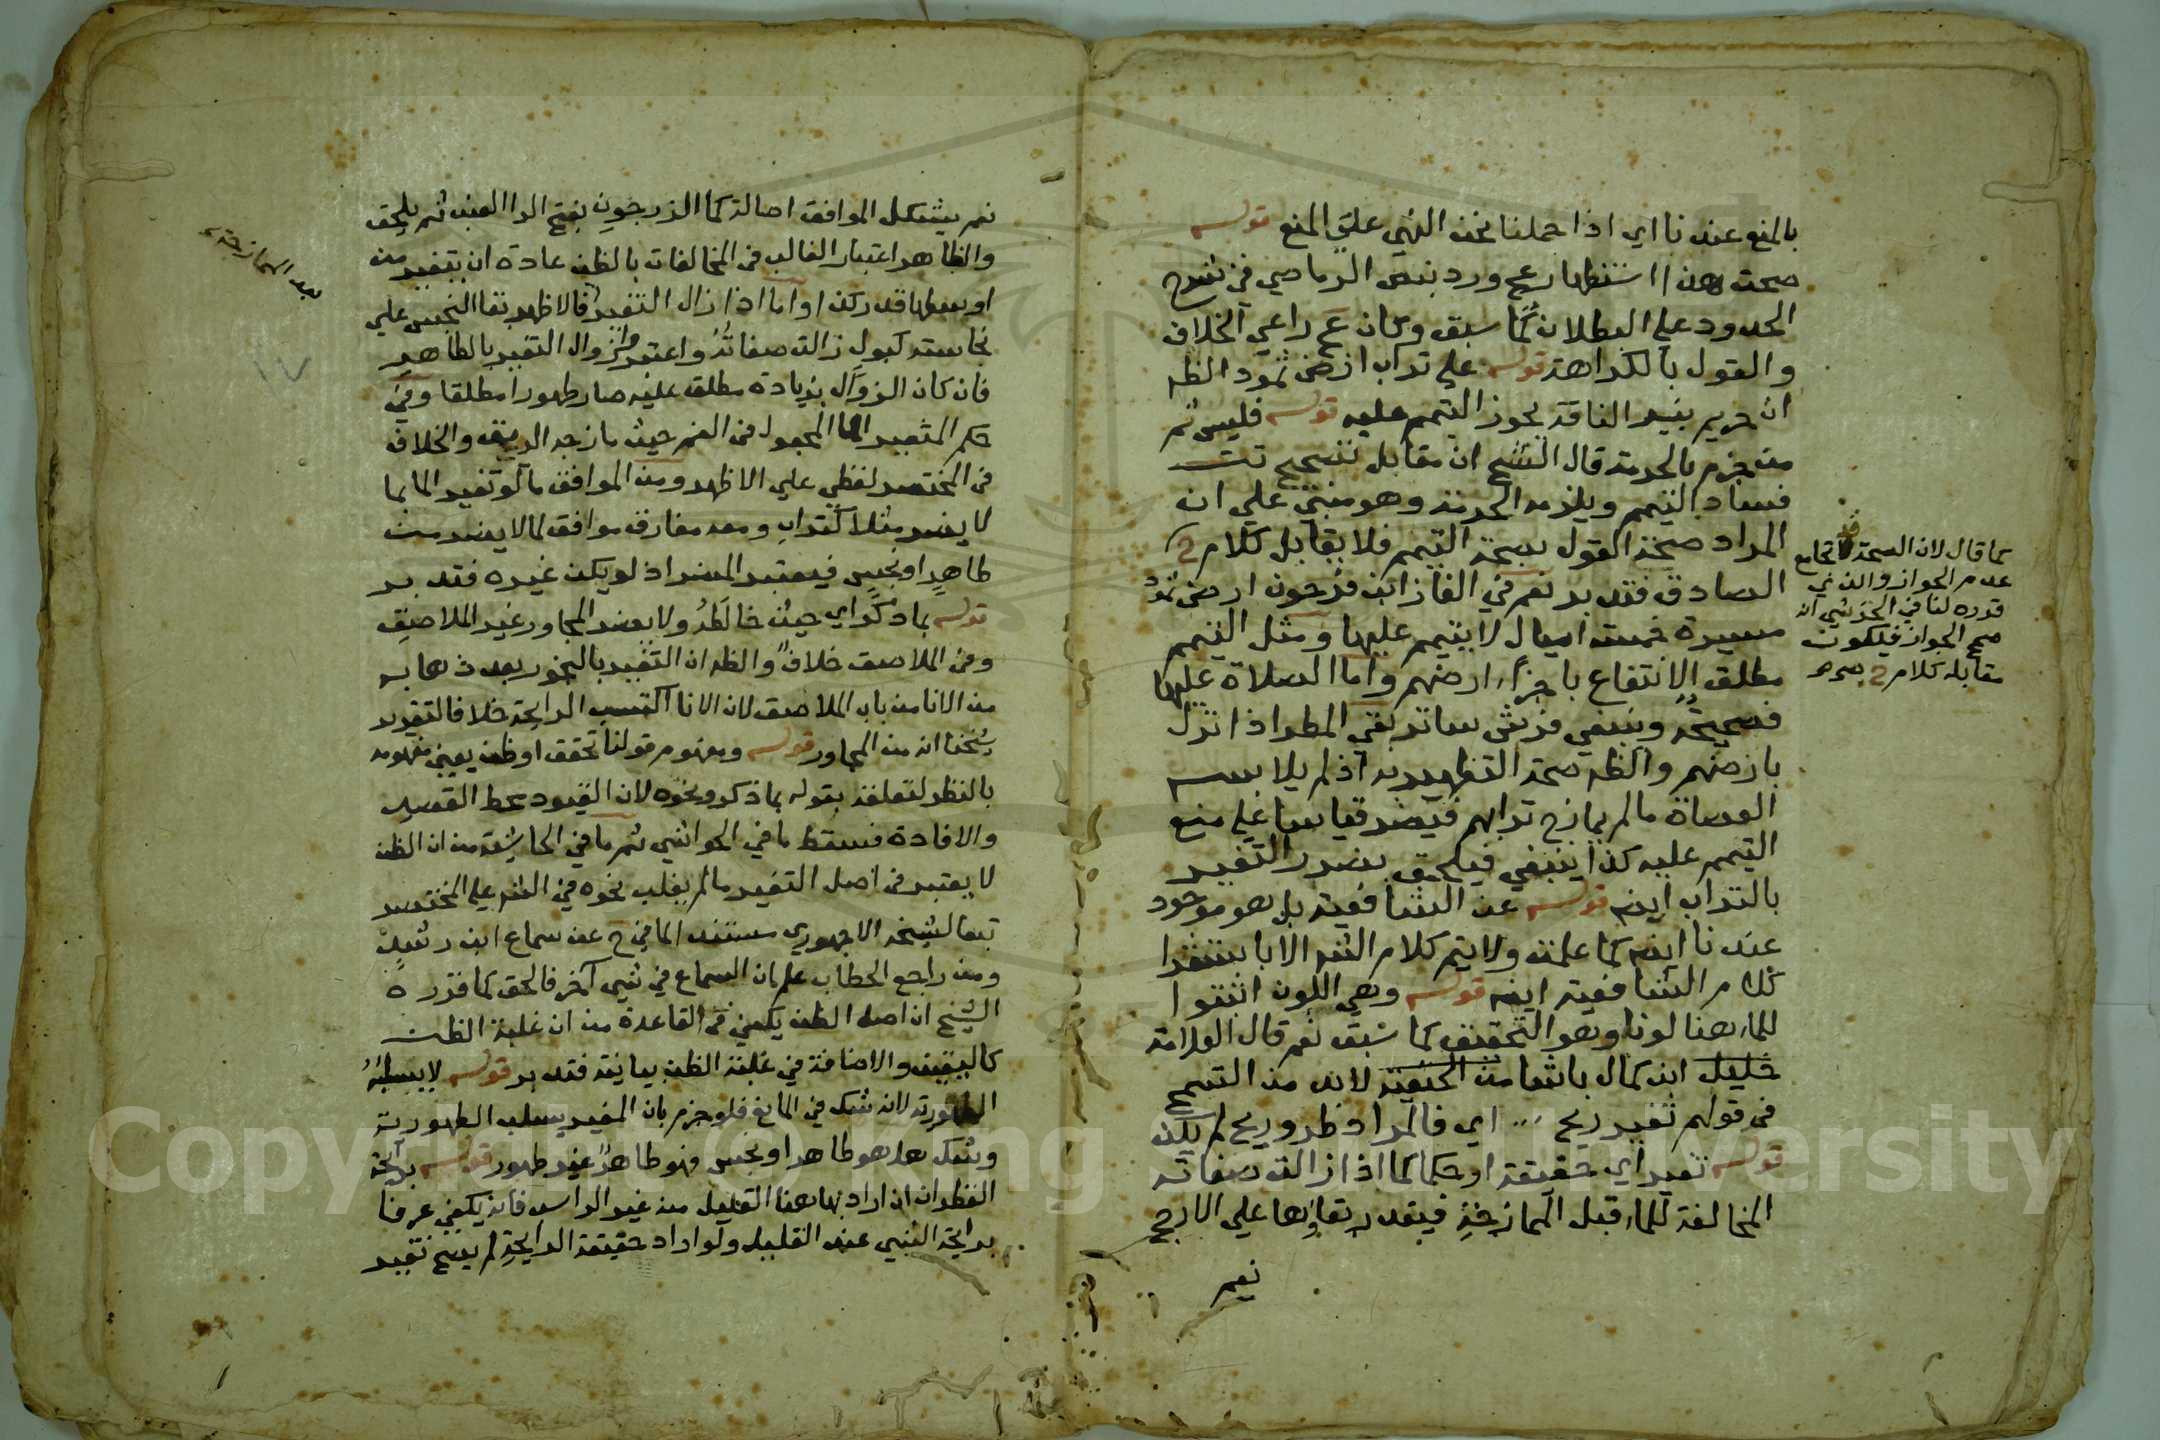 بالمنع عندنا اي اذا حملنا نحن النهي علي المنع قوله
صحت هذا استظهار عج ورد بنص الرماصي في شرح
الحدود علي البطلان كما سبق وكان عج راعي الخلاف
والقول بالكراهة قوله علي تراب ارض ثمود الظه
ان حريم بئر الناقة يجوز التيمم عليه قوله فليس ثم
من جزم بالحرمة قال الشيخ ان مقابل تصحيح تت
فساد التيمم ويلزمه الحرمة وهو مبني علي ان
المراد صحة القول بصحة التيمم فلا يقابل كلام ح
الصادق فتدبر نعم في الغاز ابن فرحون ارض ثمود
مسيرة خمسة اميال لا يتيمم عليها ومثل التيمم
مطلق الانتفاع باجزاء ارضهم واما الصلاة عليها
فصحيحة وينبغي فرش ساتر نقي المطر اذا نزل
بارضهم والظه صحة التطهير به اذ لم يلابسه
العصاة مالم يمازج ترابهم فيضر قياسا علي منع
التيمم عليه كذا ينبغي فيلحق بضرر التغير
بالتراب ايضه قوله عن الشافعية بل هو موجود
عندنا ايضه كما علمت ولا يتم كلام الشه الا باستقرا
كلام الشافعية ايضه قوله وهي اللون اثبتوا
للماء هنا لونا وهو التحقيق كما سبق نعم قال العلامة
خليل ابن كمال باشا من الحنفية لابد من التسمح
في قولهم تغير ريح الماء اي فالمراد طرو ريح لم يكن
قوله تغير اي حقيقة او حكما كما اذا زالت صفاته
المخالفة للماء قبل الممازجة فيقدر بقاؤها علي الارجح
نعم
كما قال لان الصحة قد تجامع
عدم الجواز والذي
قرره لنا في الخرشي انه
صح الجواز فيكون
مقابله كلام ح صح
نعم يشكل الموافق اصالة كما الزرجون بفتح الرا العنب ثم يلحق
والظاهر اعتبار الغالب في المخالفات بالظن عادة ان يتغير من
اوسطها قدر كذا واما اذا زال التغير فالاظهر بقا النجس علي
نجاسته كبول زالت صفاته واعتمد وازوال التغير بالطاهر
فان كان الزوال بزيادة مطلق عليه صار طهورا مطلقا وفي
حكم المتغير الما المجعول في الفم حيث مازجه الريق والخلاف
في المختصر لفظي علي الاظهر ومن الموافق ما لو تغير الما بما
لا يضر مثلا كتراب ومعه مفارق موافق لما لا يضر من
طاهر او نجس فيعتبر المضر اذ لو يكن غيره فتدبر
قوله بما ذكر اي حيث خالطه ولا يضر المجاور غير الملاصق
وفي الملاصق خلاف والظه ان التغير بالبخور بعد ذهابه
من الانا من باب الملاصق لان الانا اكتسب الرايحة خلافا لتقرير
شيخنا انه من المجاور قوله ومفهوم قولنا تحقق او ظن يعني مفهومه
بالنظر لتعلقه بقوله بما ذكر ونحوه لان القيود محط القصد
والافادة فسقط ما في الحواشي ثم ما في الحاشية من ان الظن
لا يعتبر في اصل التغير مالم يغلب نحوه في الشه علي المختصر
تبعا لشيخه الاجهوري مستندا لما في ح عن سماع ابن رشد
ومن راجع الحطاب علم ان السماع في شي آخر فالحق كما قرره
الشيخ ان اصل الظن يكفي في القاعدة من ان غلبة الظن
كاليقين والاضافة في غلبة الظن بيانية فتدبر قوله لا يسلبه
الطهورية لانه شك في المانع فلو جزم بان المغير يسلب الطهورية
وشك هل هو طاهر او نجس فهو طاهر غير طهور قوله برائحة
القطران ان اراد بها هنا القليل من غير الراسب فانه يكفي عرفا
برايحة الشي عند القليل ولو اراد حقيقة الرايحة لم يصح تغير
بعد الممازجة
١٧
Copyright © King Saud University